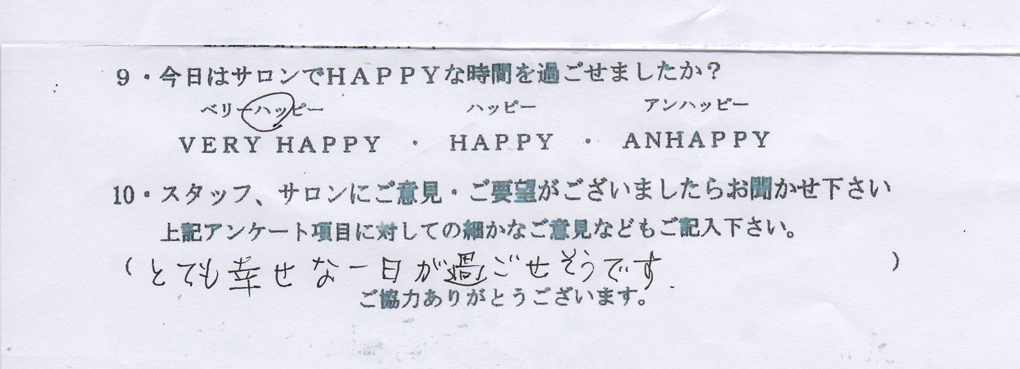 9・今日はサロンでHAPPYな時間を過ごせましたか？
ベリーハッピー ハッピー アンハッピー
VERY HAPPY ・ HAPPY ・ ANHAPPY
10・スタッフ、サロンにご意見・ご要望がございましたらお聞かせ下さい
上記アンケート項目に対しての細かなご意見などもご記入下さい。
(とても幸せな一日が過ごせそうです. )
ご協力ありがとうございます。